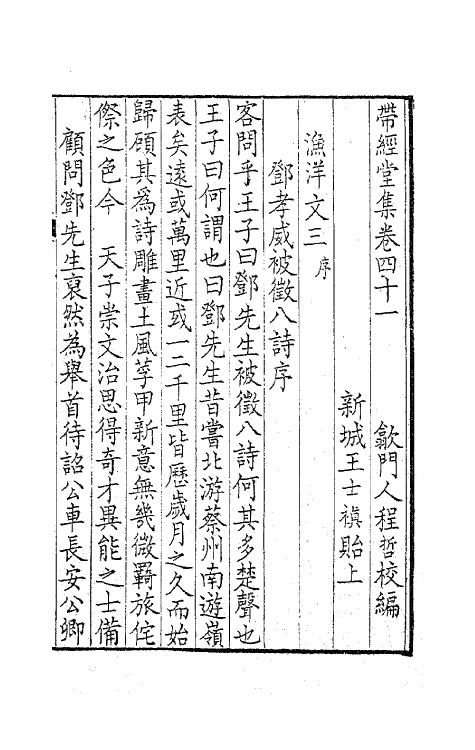 帶經堂集卷四十一　歙門人程哲校編
新城王士禛貽上
漁洋文三　序
鄧孝威被徵八詩序
客問乎王子曰鄧先生被徵八詩何其多楚聲也
王子曰何謂也曰鄧先生昔嘗北游蔡州南遊嶺
表矣遠或萬里近或一二千里皆歷歲月之久而始
歸顧其爲詩雕畫土風莩甲新意無幾微羇旅侘
傺之色今　天子崇文治思得奇才異能之士備
顧問鄧先生裒然為舉首待詔公車長安公卿